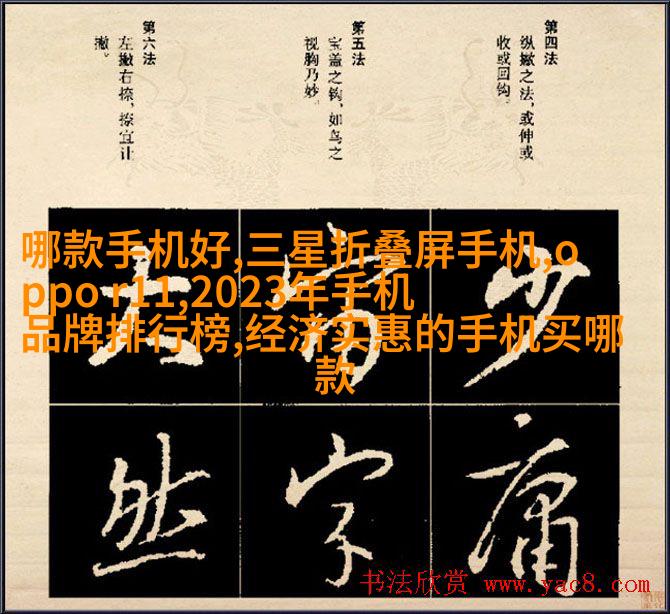 第四法
纵撇之法，或伸或
收或回钩。
第五法
宝盖之钩，如鸟之
视胸乃妙。
第六法
左撇右捺，捺宜让
撇。
哪款手机好,三星折叠屏手机,o
ppo r11,2023年手机
品牌排行榜,经济实惠的手机买哪
款
少
庸
字
然
书法欣赏 www.yac8.com